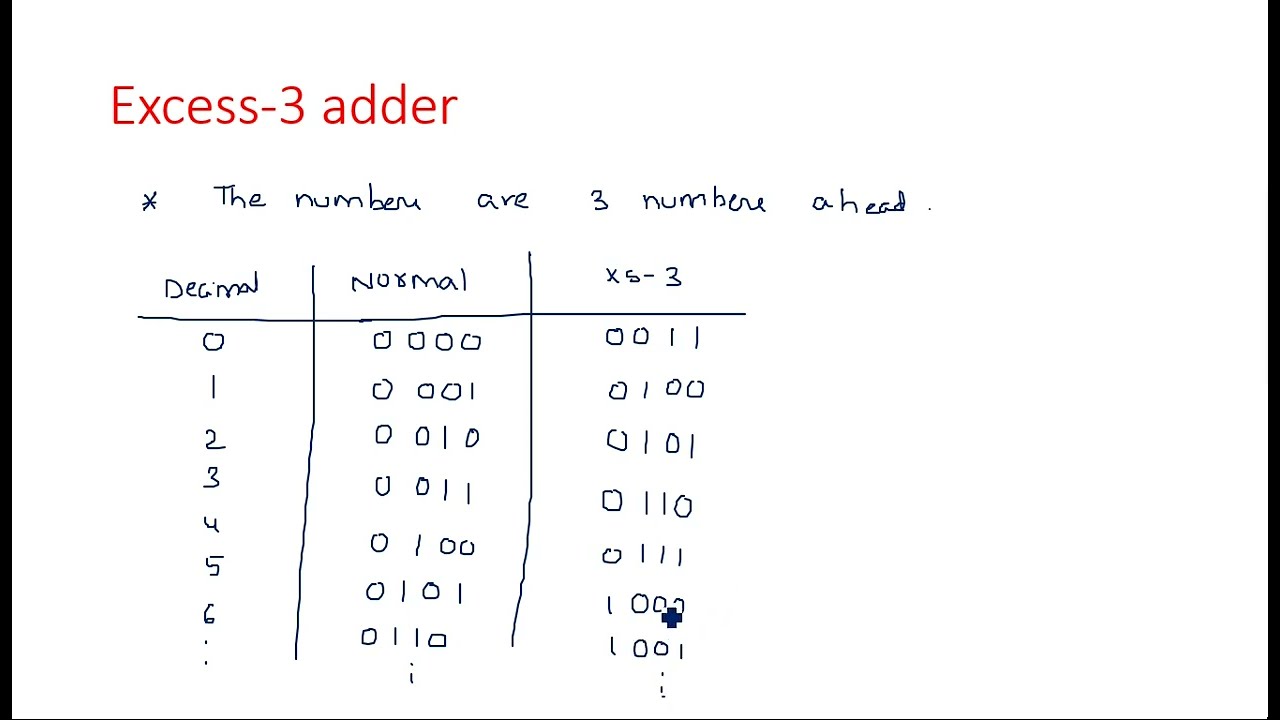 Excess-3 adder
* The numbers are 3 numbers ahead.
Decimal Normal xs-3
0 0000 0011
1 0001 0100
2 0010 0101
3 0011 0110
4 0100 0111
5 0101 1000
6 0110 1001
: : :